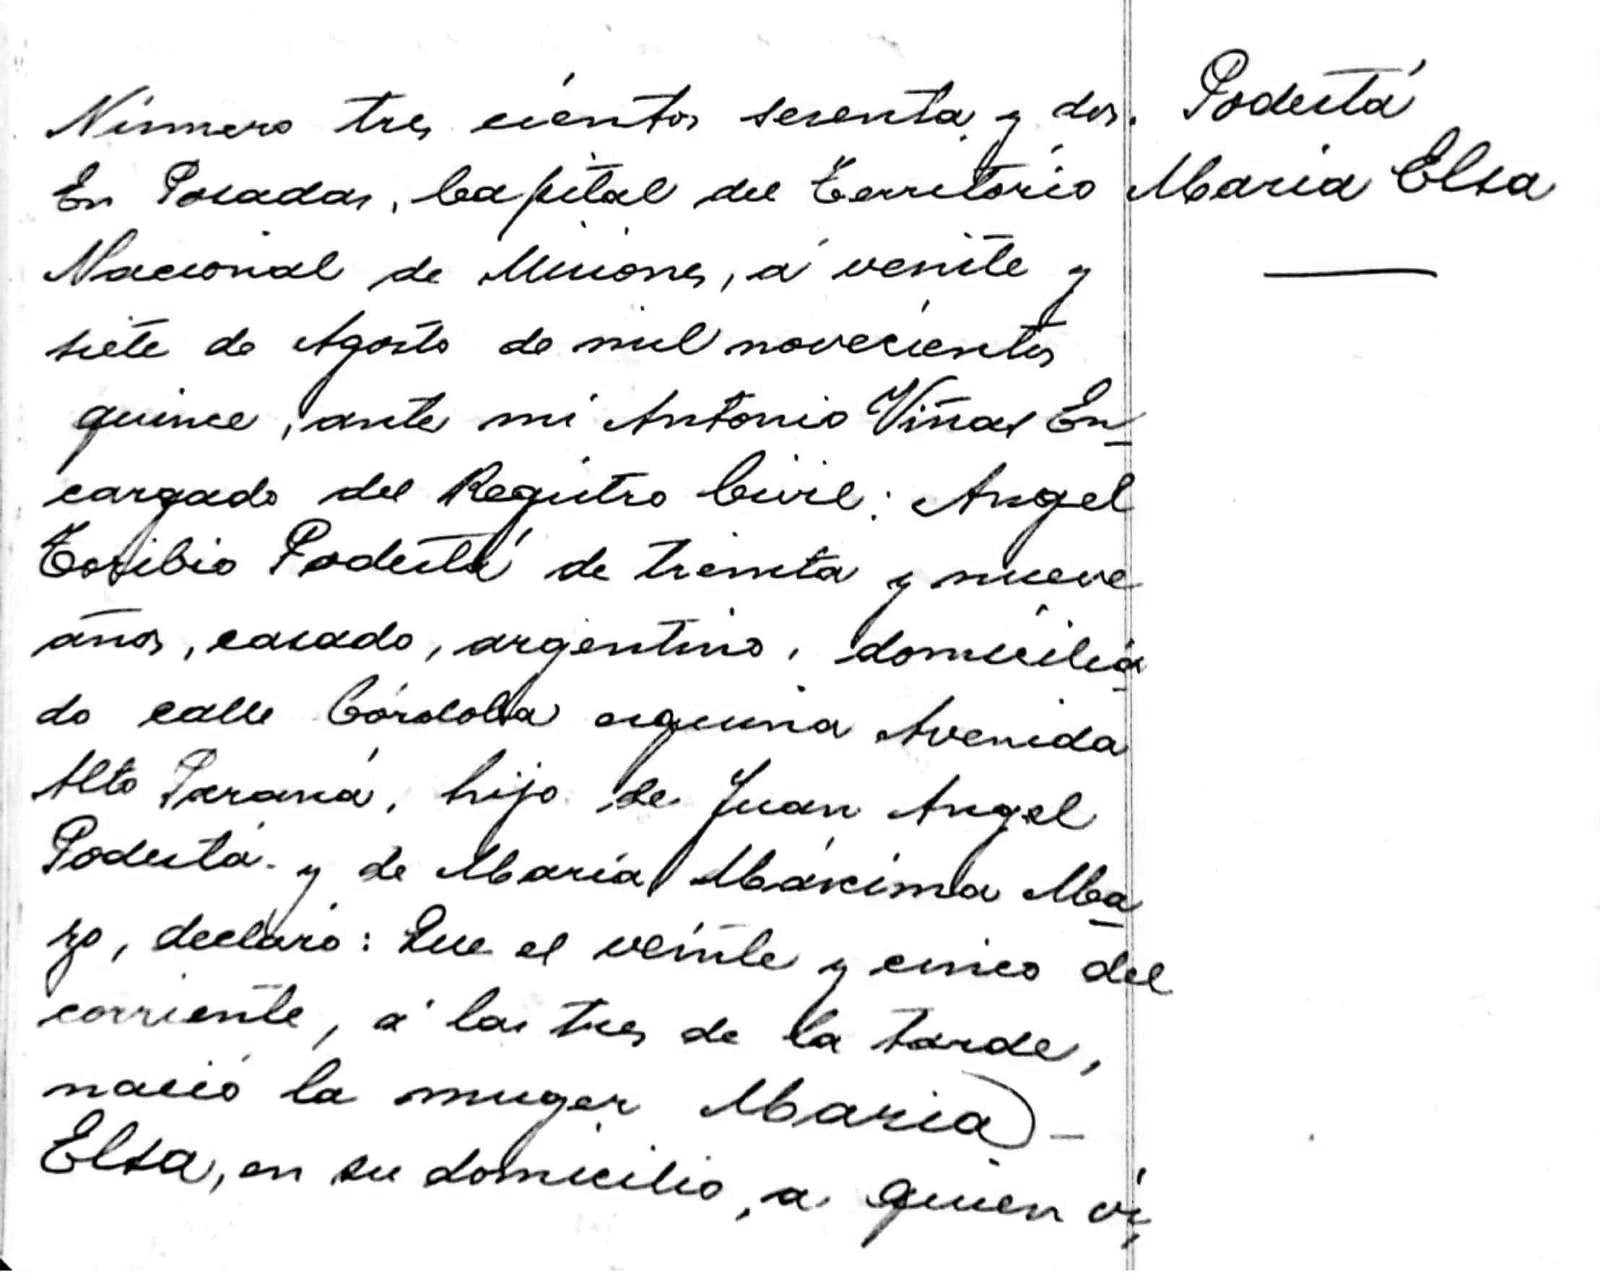 Número tres cientos sesenta y dos.
En Posadas, Capital del Território
Nacional de Misiones, á veinte y
siete de Agosto de mil novecientos
quince, ante mi Antonio Viñas En
cargado del Registro Civil: Angel
Toribio Podestá de treinta y nueve
años, casado, argentino, domicilia
do calle Córdoba esquina Avenida
Alto Paraná, hijo de Juan Angel
Podestá y de María Máxima Ma
zo, declaró: Que el veinte y cinco del
corriente, á las tres de la tarde,
nació la muger Maria -
Elsa, en su domicilio, a quien ví,
Podestá
Maria Elsa